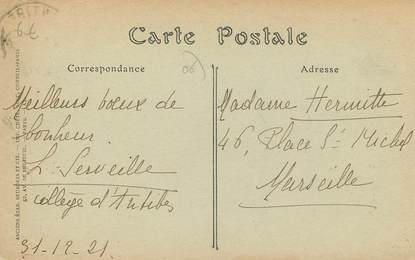 Carte Postale
Correspondance
Meilleurs bœux de
bonheur
L. Serveille
collège d'Antibes
31-12-21
Adresse
Madame Hermitte
46, Place St Michel
Marseille
06
6€